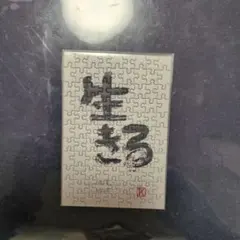 生
きる